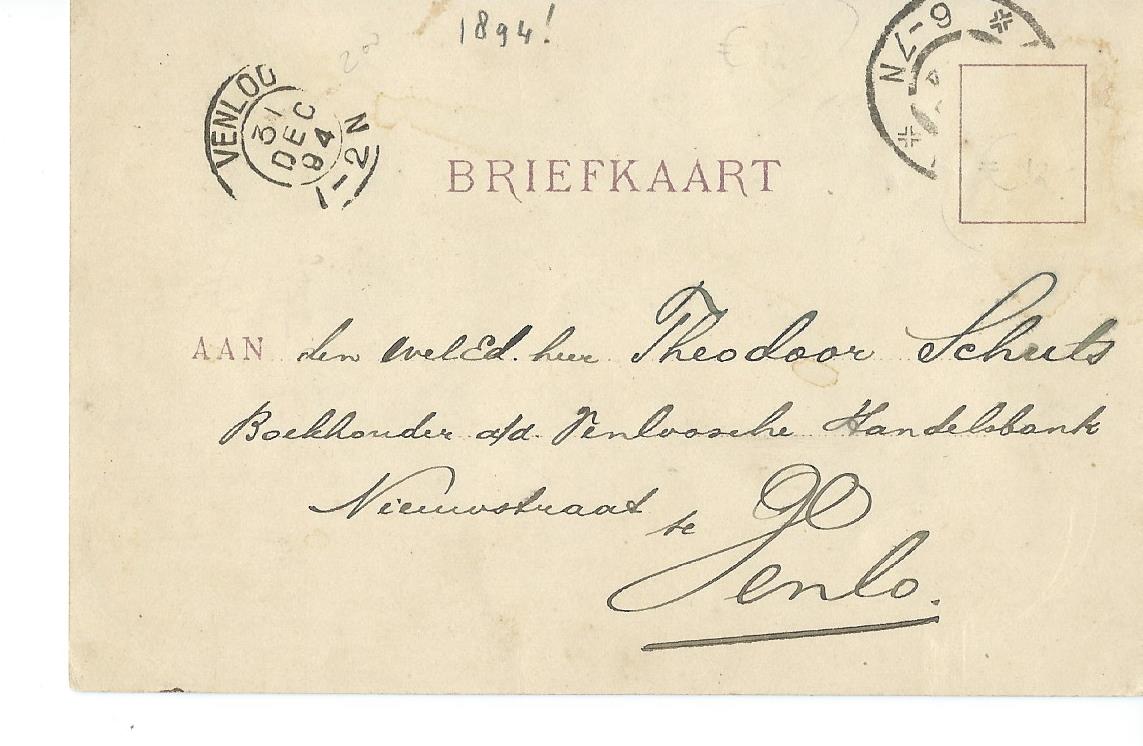 1894!
200
VENLOO
31
DEC
94
1-2N
6-7N
BRIEFKAART
AAN den WelEd. heer Theodoor Schuts
Boekhouder a/d. Venloosche Handelsbank
Nieuwstraat te
Venlo.